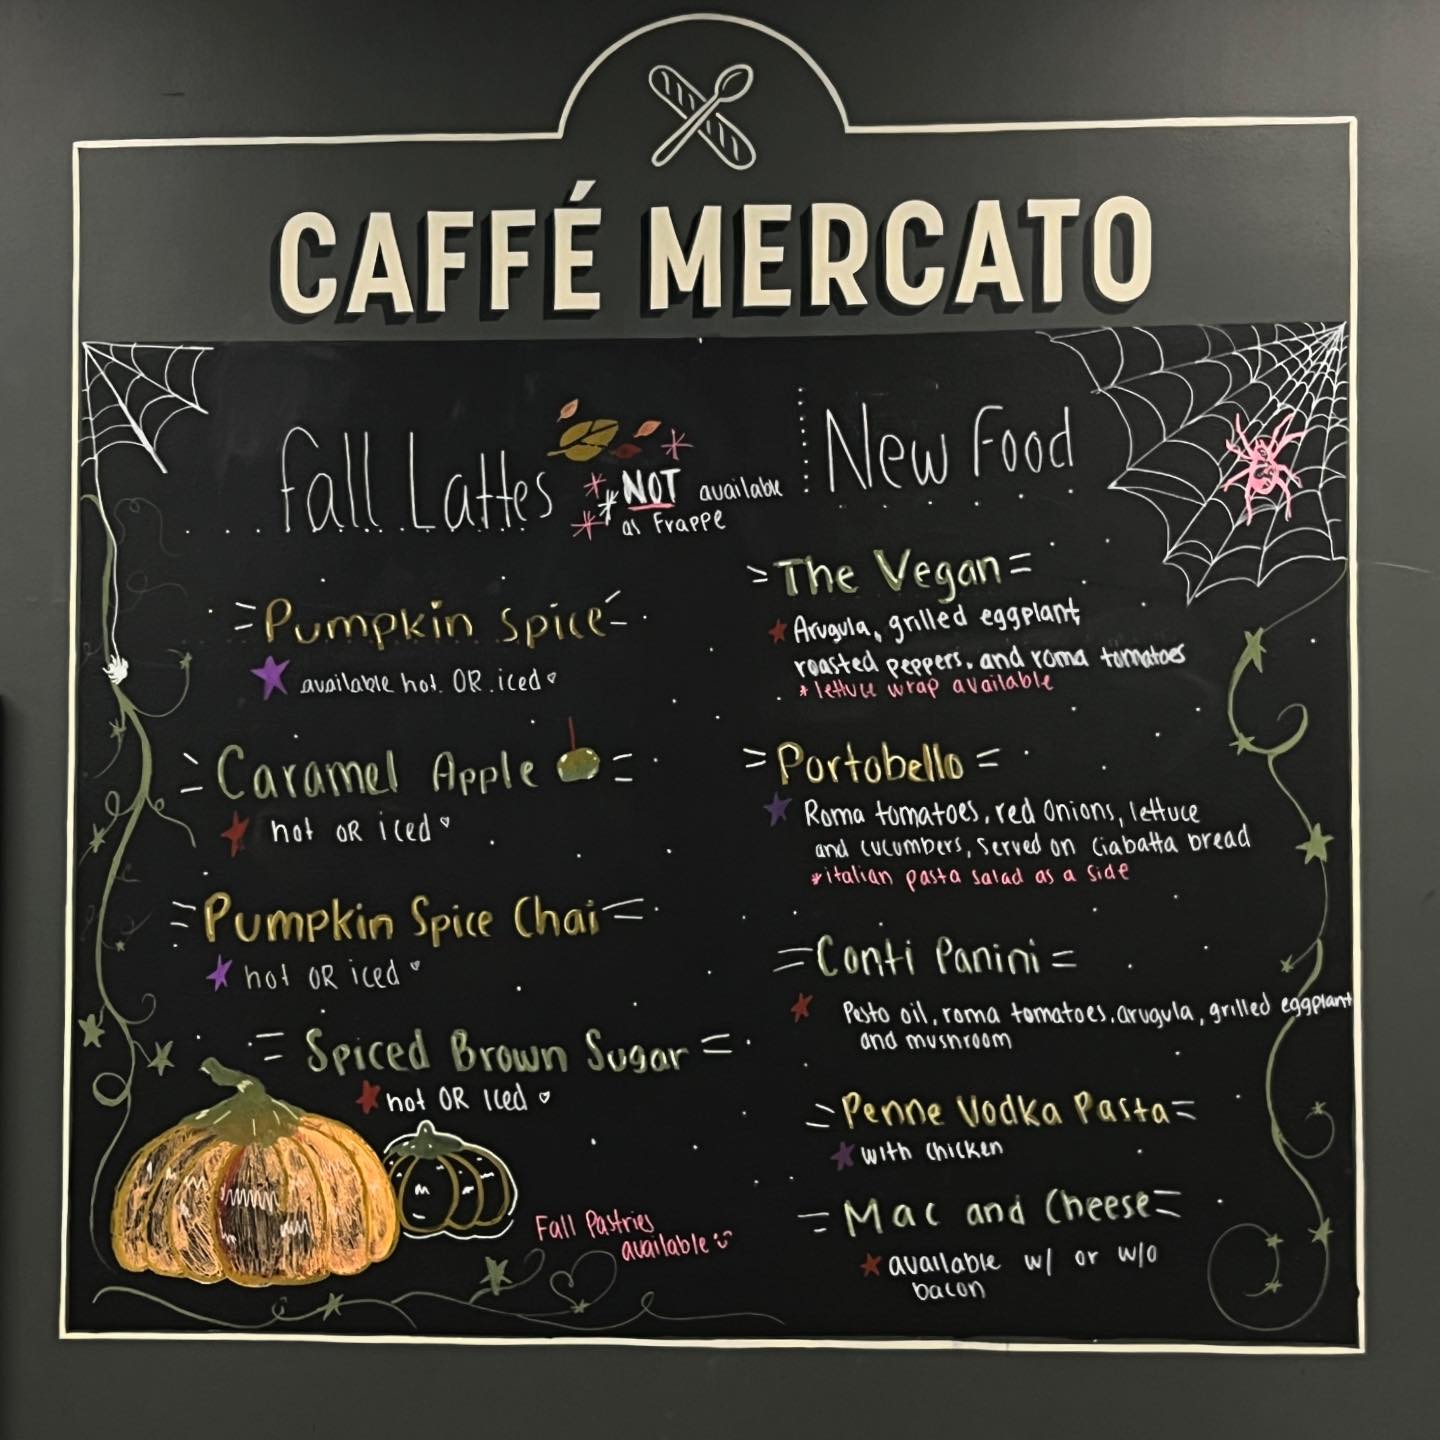 CAFFÉ MERCATO
Fall Lattes
* NOT available
as Frappe
Pumpkin Spice
available hot OR iced
Caramel Apple
hot OR iced
Pumpkin Spice Chai
hot OR iced
Spiced Brown Sugar
hot OR Iced
Fall Pastries
available
New Food
The Vegan
Arugula, grilled eggplant,
roasted peppers, and roma tomatoes
*lettuce wrap available
Portobello
Roma tomatoes, red Onions, lettuce
and cucumbers, Served on Ciabatta bread
*italian pasta salad as a side
Conti Panini
Pesto oil, roma tomatoes, arugula, grilled eggplant
and mushroom
Penne Vodka Pasta
with Chicken
Mac and Cheese
available w/ or w/o
bacon